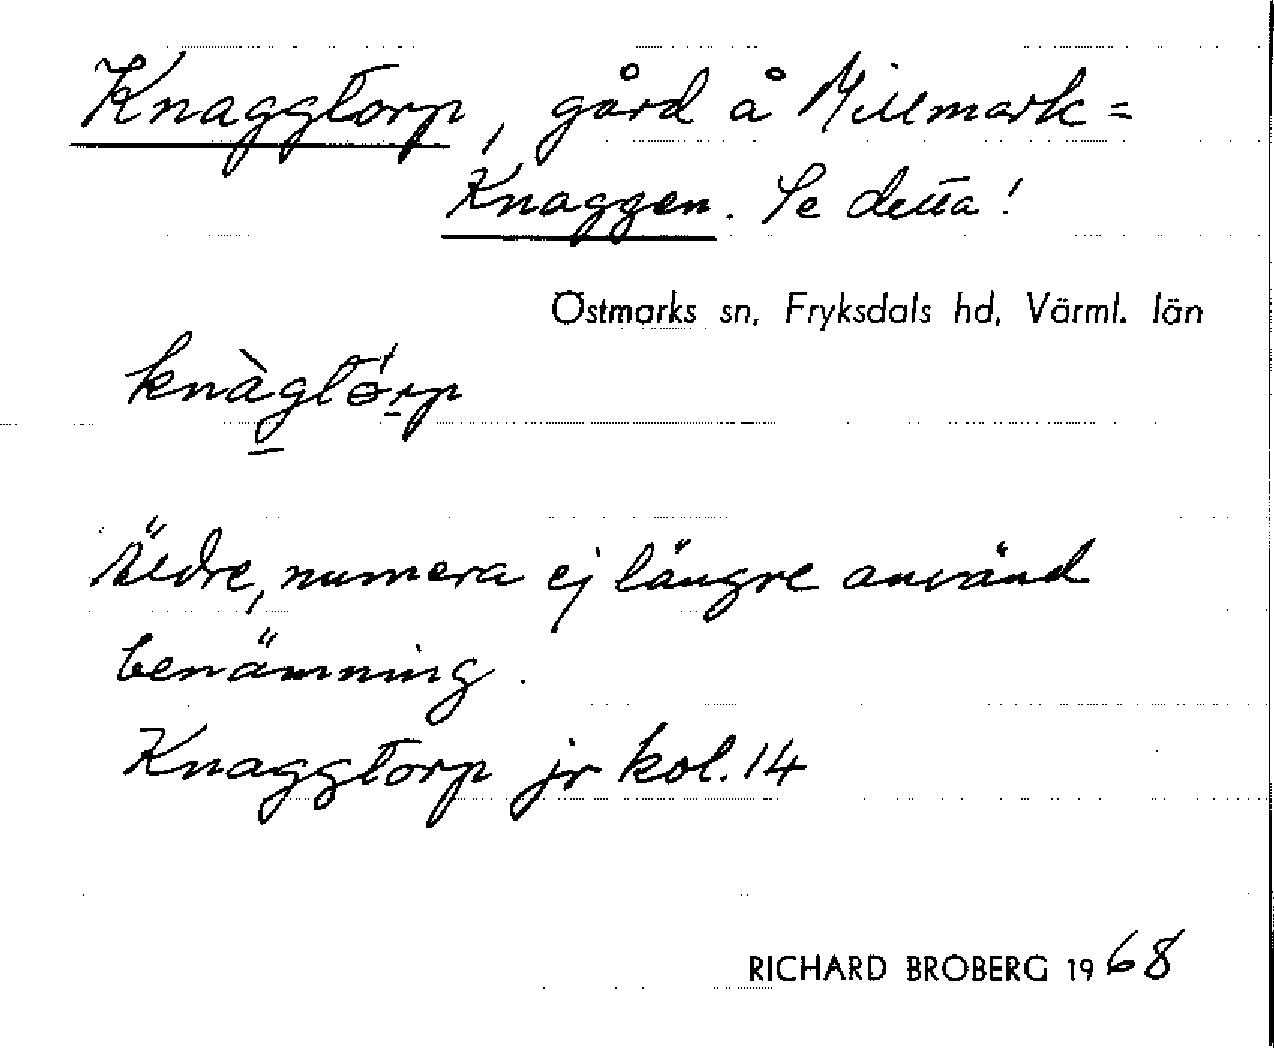 Knaggtorp, gård å Millmark =
Knaggen. Se detta!
Östmarks sn, Fryksdals hd, Värml. län
knàgtö́rp
Äldre, numera ej längre använd
benämning.
Knaggtorp jr kol. 14
RICHARD BROBERG 1968